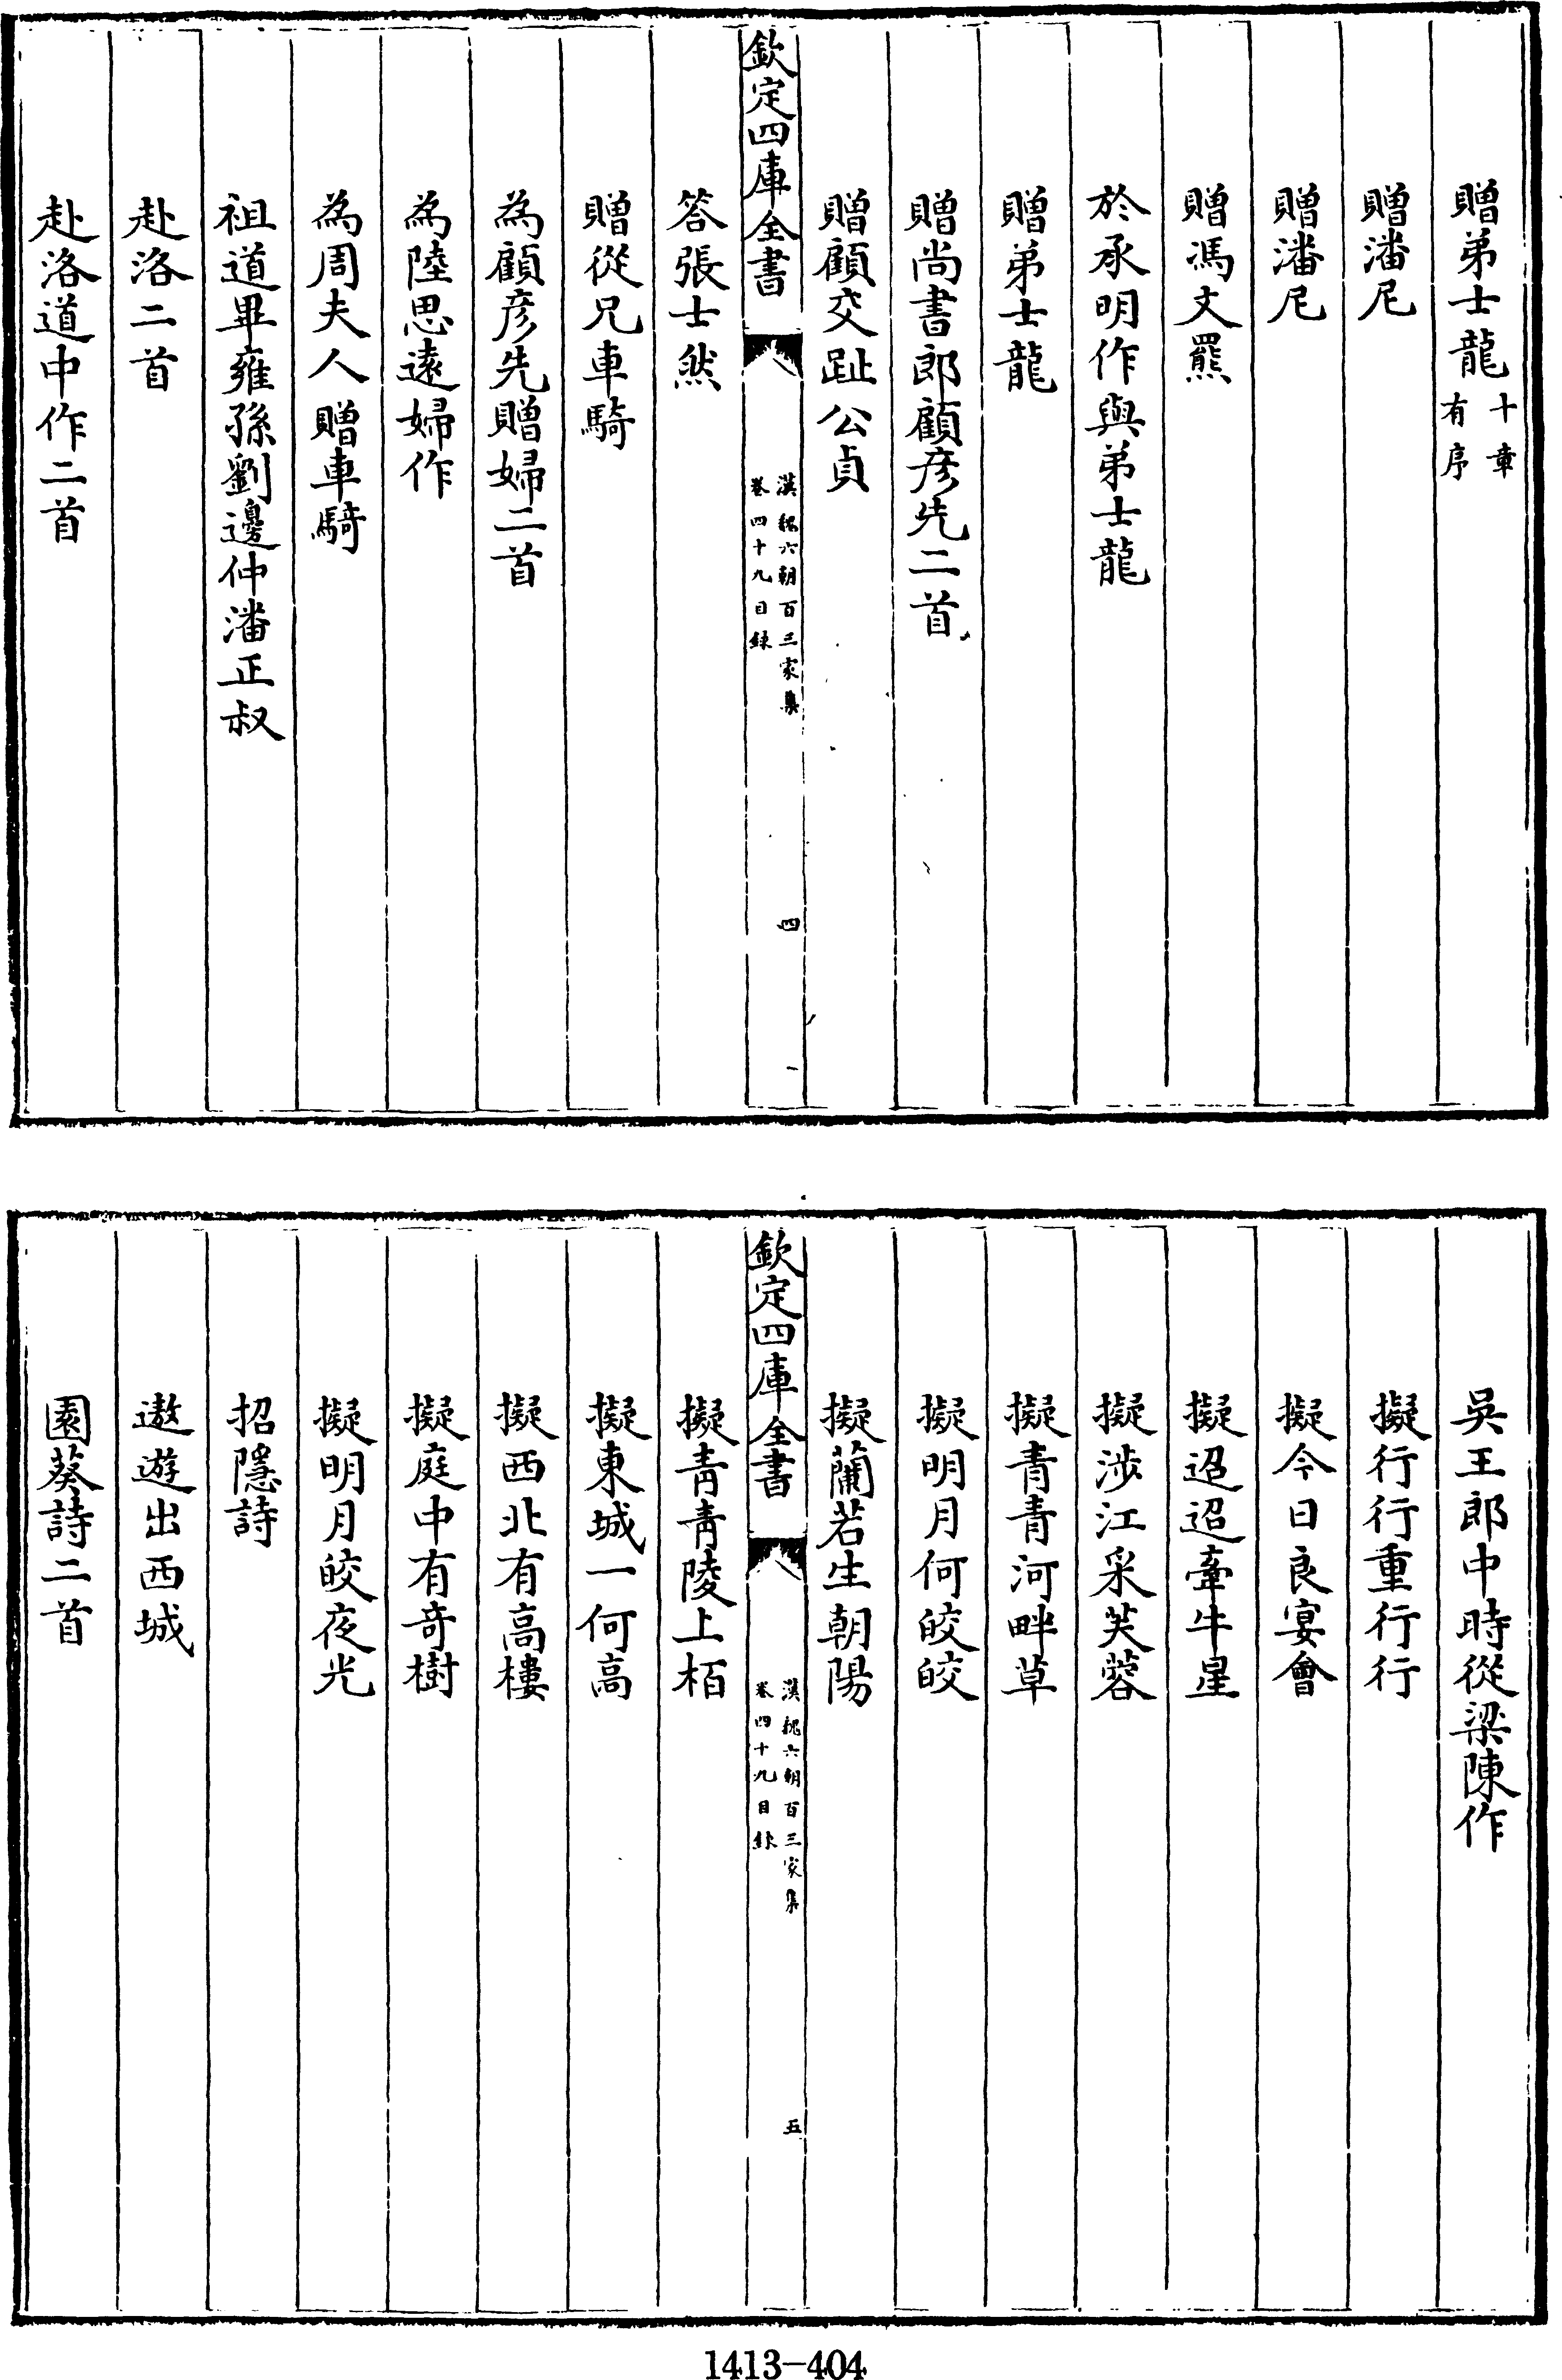 贈弟士龍十章有序
贈潘尼
贈潘尼
贈馮文羆
於承明作與弟士龍
贈弟士龍
贈尚書郎顧彥先二首
贈顧交趾公貞
欽定四庫全書
漢魏六朝百三家集
卷四十九目録
四
答張士然
贈從兄車騎
為顧彥先贈婦二首
為陸思遠婦作
為周夫人贈車騎
祖道畢雍孫劉邊仲潘正叔
赴洛二首
赴洛道中作二首
吳王郎中時從梁陳作
擬行行重行行
擬今日良宴會
擬迢迢牽牛星
擬涉江采芙蓉
擬青青河畔草
擬明月何皎皎
擬蘭若生朝陽
欽定四庫全書
漢魏六朝百三家集
卷四十九目録
五
擬青青陵上栢
擬東城一何高
擬西北有高樓
擬庭中有竒樹
擬明月皎夜光
招隱詩
遨遊出西城
園葵詩二首
1413-404